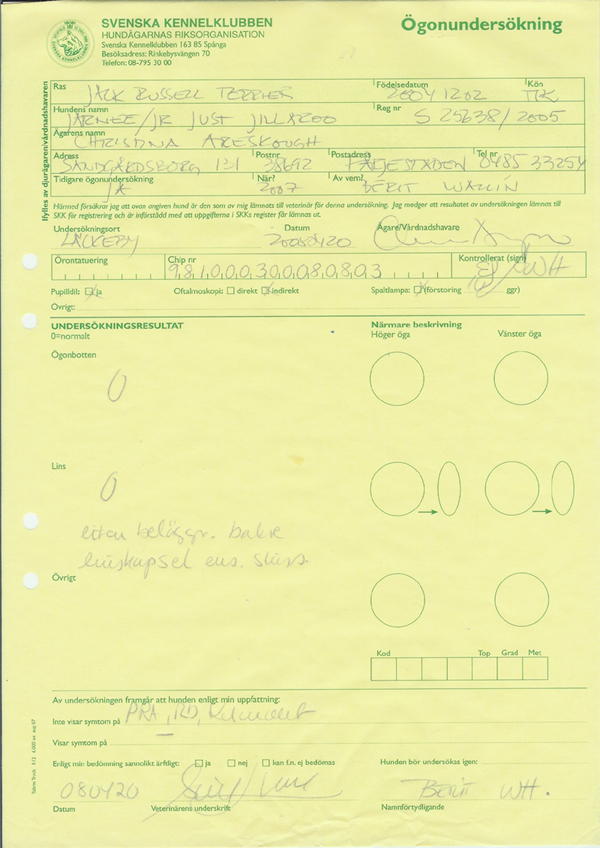 SVENSKA KENNELKLUBBEN
HUNDÄGARNAS RIKSORGANISATION
Svenska Kennelklubben 163 85 Spånga
Besöksadress: Rinkebysvängen 70
Telefon: 08-795 30 00
Ögonundersökning
Ifylles av djurägaren/vårdnadshavaren
Ras JACK RUSSELL TERRIER Födelsedatum 20041202 Kön TIK
Hundens namn JÄRNEZ/JR JUST JILLAROO Reg nr S 25638/2005
Ägarens namn CHRISTINA ARESKOUGH
Adress SANDGÅRDSBORG 131 Postnr 38692 Postadress FÄRJESTADEN Tel nr 0485 33254
Tidigare ögonundersökning JA När? 2007 Av vem? BERIT WALLIN
Härmed försäkrar jag att ovan angiven hund är den som av mig lämnats till veterinär för denna undersökning. Jag medger att resultatet av undersökningen lämnas till
SKK för registrering och är införstådd med att uppgifterna i SKKs register får lämnas ut.
Undersökningsort LÄCKEBY Datum 20080420 Ägare/Vårdnadshavare
Örontatuering Chip nr 981000300080803 Kontrollerat (sign) WH
Pupilldil: ja Oftalmoskopi: direkt indirekt Spaltlampa: (förstoring ggr)
Övrigt:
UNDERSÖKNINGSRESULTAT Närmare beskrivning
0=normalt Höger öga Vänster öga
Ögonbotten
0
Lins
0
liten beläggn. bakre
linskapsel
Övrigt
Kod Top Grad Met
Av undersökningen framgår att hunden enligt min uppfattning:
Inte visar symtom på PRA, RD, Katarakt
Visar symtom på
Enligt min bedömning sannolikt ärftligt: ja nej kan f.n. ej bedömas Hunden bör undersökas igen:
080420 BERIT WH.
Datum Veterinärens underskrift Namnförtydligande